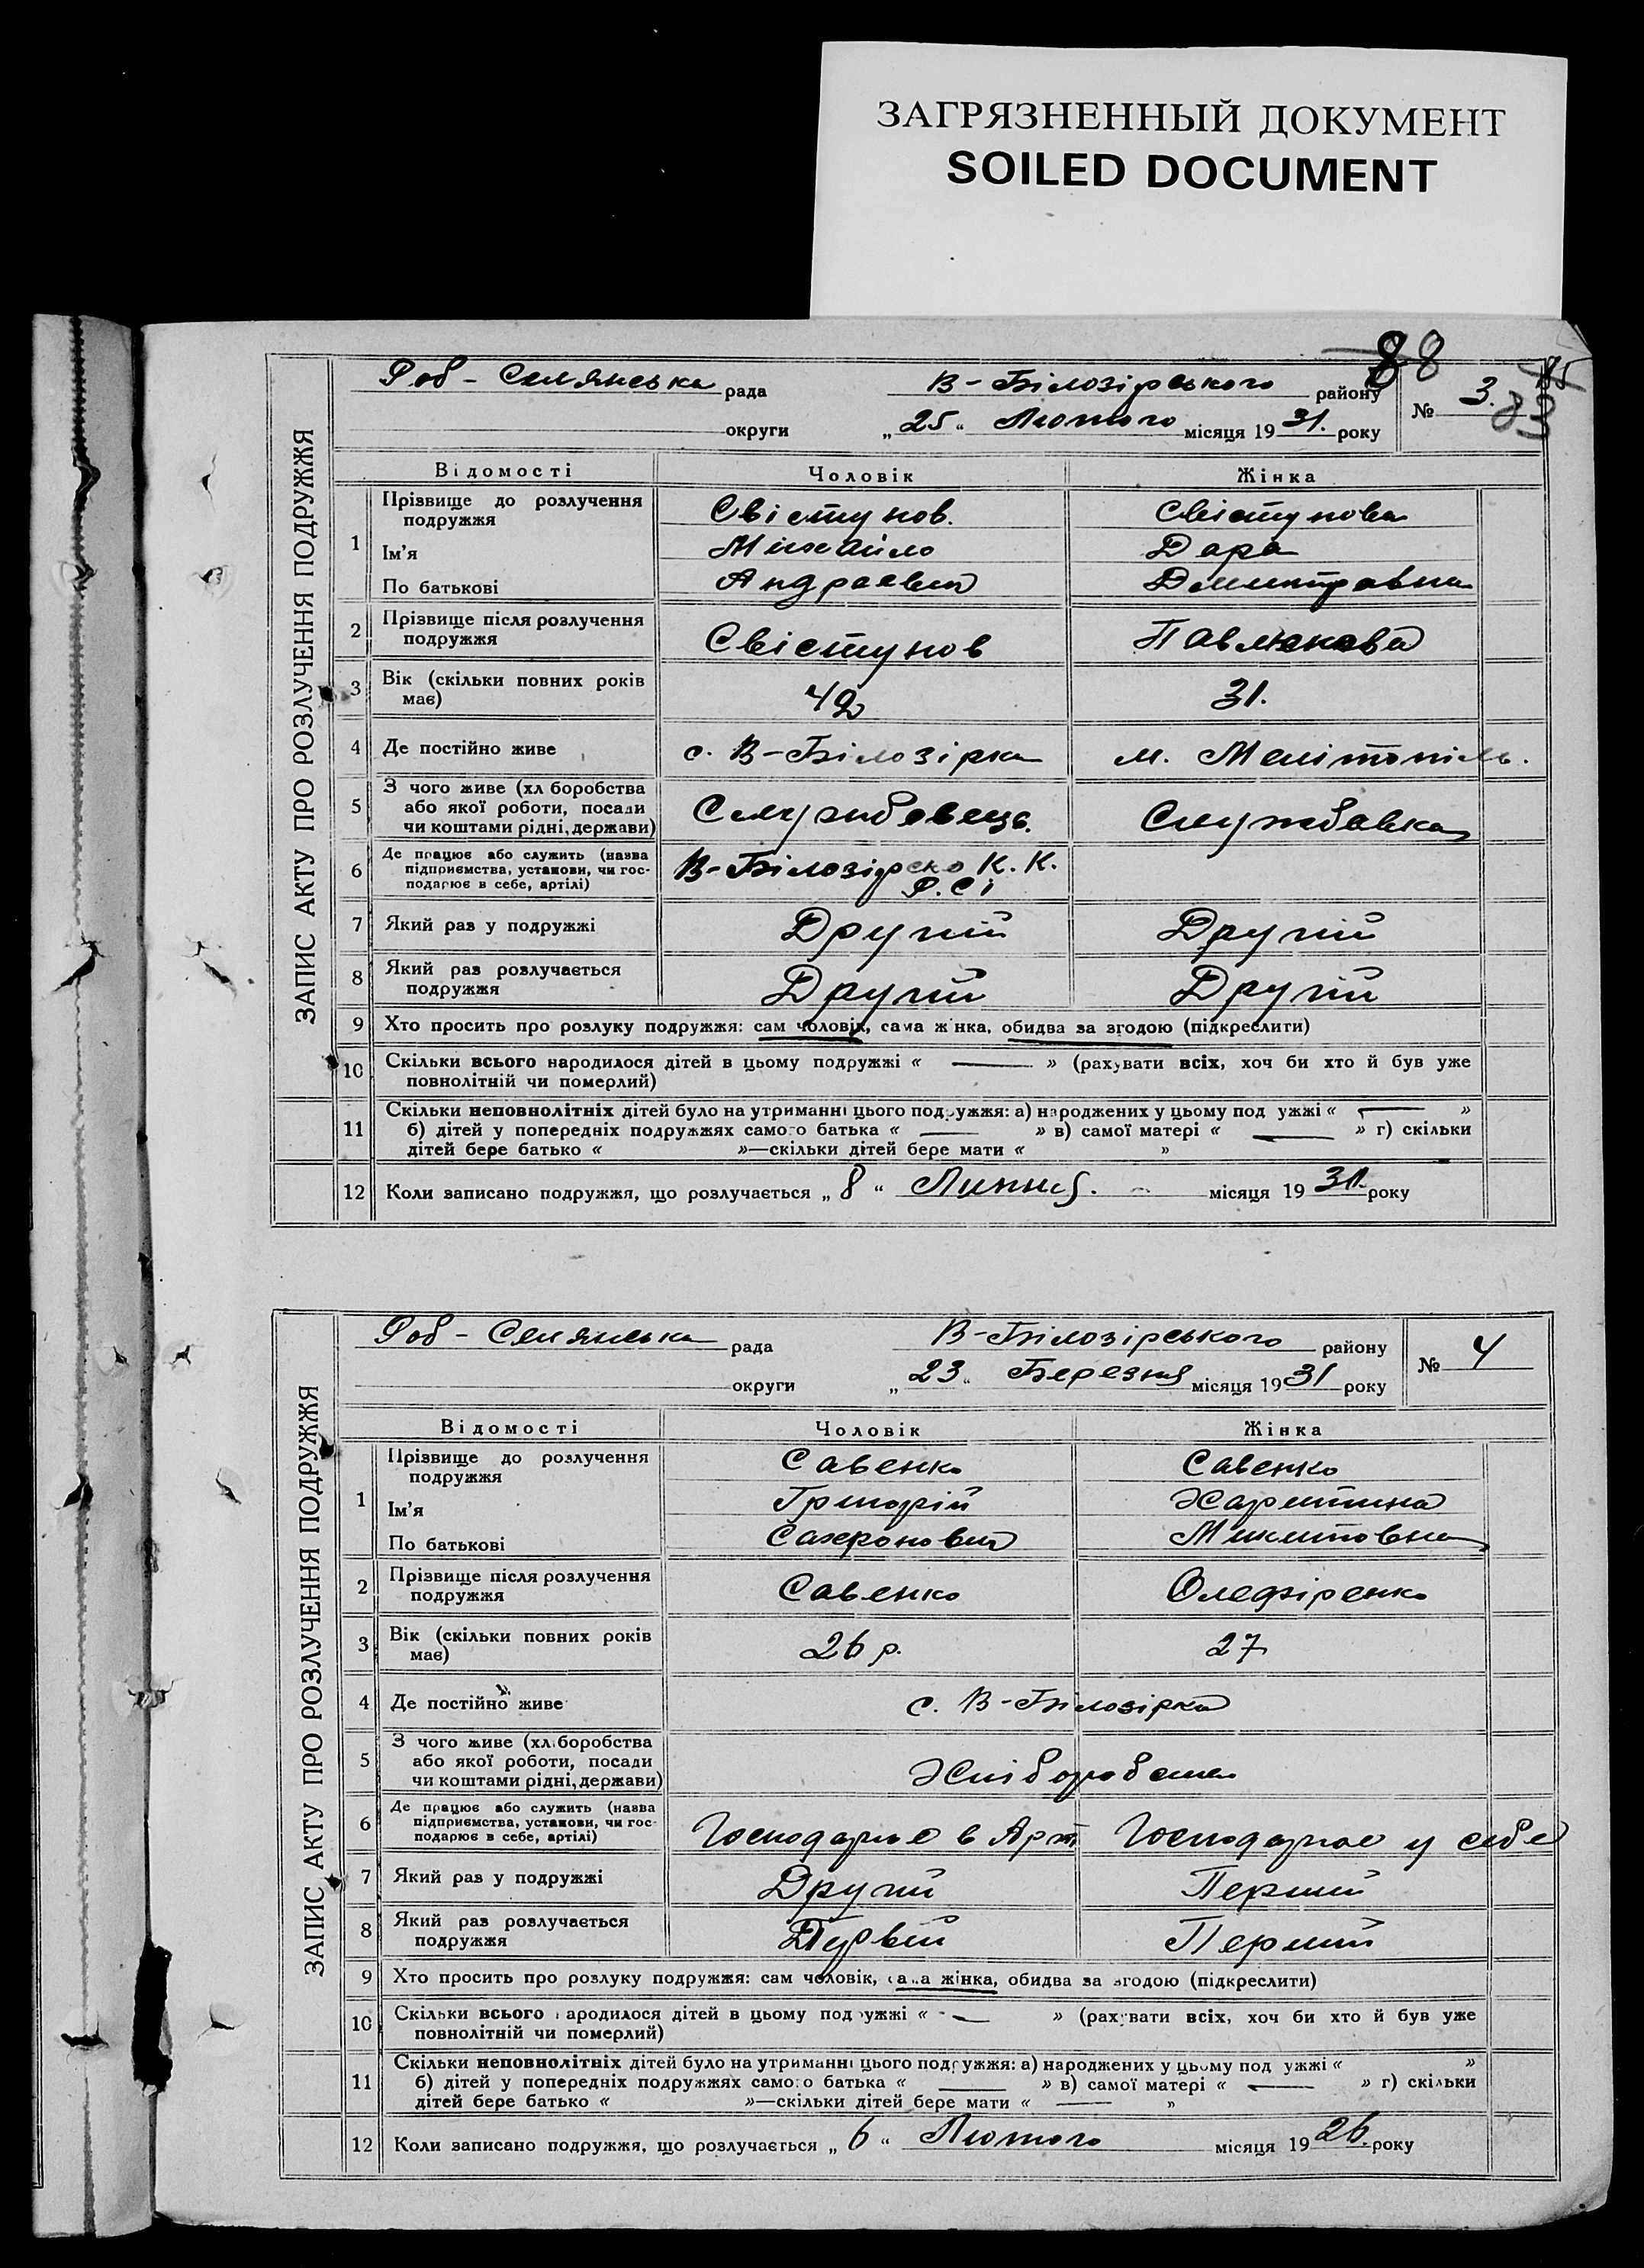 ЗАГРЯЗНЕННЫЙ ДОКУМЕНТ
SOILED DOCUMENT
88
85
83
ЗАПИС АКТУ ПРО РОЗЛУЧЕННЯ ПОДРУЖЖЯ
Роб-Селянська рада В-Білозірського району № 3.
округи „25“ Лютого місяця 1931. року
Відомості Чоловік Жінка
1 Прізвище до розлучення подружжя Свістунов. Свістунова
Ім'я Михайло Дара
По батькові Андраевич Дмитровна
2 Прізвище після розлучення подружжя Свістунов Павлюкова
3 Вік (скільки повних років має) 42 31.
4 Де постійно живе с. В-Білозірка м. Мелітопіль.
5 З чого живе (хл боробства або якої роботи, посади чи коштами рідні, держави) Службовець. Службовка
6 Де працює або служить (назва підприємства, установи, чи господарює в себе, артілі) В-Білозірско К. К. Р. С і
7 Який раз у подружжі Другий Другий
8 Який раз розлучається подружжя Другий Другий
9 Хто просить про розлуку подружжя: сам чоловік, сама жінка, обидва за згодою (підкреслити)
10 Скільки всього народилося дітей в цьому подружжі « — » (рахувати всіх, хоч би хто й був уже
повнолітній чи померлий)
11 Скільки неповнолітніх дітей було на утриманні цього подружжя: а) народжених у цьому под ужжі « — »
б) дітей у попередніх подружжях самого батька « — » в) самої матері « — » г) скільки
дітей бере батько « »—скільки дітей бере мати « »
12 Коли записано подружжя, що розлучається „8“ Липня. місяця 1930. року
ЗАПИС АКТУ ПРО РОЗЛУЧЕННЯ ПОДРУЖЖЯ
Роб-Селянська рада В-Білозірського району № 4
округи „23“ Березня місяця 1931 року
Відомості Чоловік Жінка
1 Прізвище до розлучення подружжя Савенко Савенко
Ім'я Григорій Харитина
По батькові Сахронович Микитовна
2 Прізвище після розлучення подружжя Савенко Олефіренко
3 Вік (скільки повних років має) 26 р. 27
4 Де постійно живе с. В-Білозірка
5 З чого живе (хліборобства або якої роботи, посади чи коштами рідні, держави) Хліборобства
6 Де працює або служить (назва підприємства, установи, чи господарює в себе, артілі) Господарює в Арт. Господарює у себе
7 Який раз у подружжі Другий Перший
8 Який раз розлучається подружжя Первій Перший
9 Хто просить про розлуку подружжя: сам чоловік, сама жінка, обидва за згодою (підкреслити)
10 Скільки всього народилося дітей в цьому подружжі « — » (рахувати всіх, хоч би хто й був уже
повнолітній чи померлий)
11 Скільки неповнолітніх дітей було на утриманні цього подружжя: а) народжених у цьому под ужжі « »
б) дітей у попередніх подружжях самого батька « — » в) самої матері « — » г) скільки
дітей бере батько « »—скільки дітей бере мати « — »
12 Коли записано подружжя, що розлучається „6“ Лютого місяця 1926. року